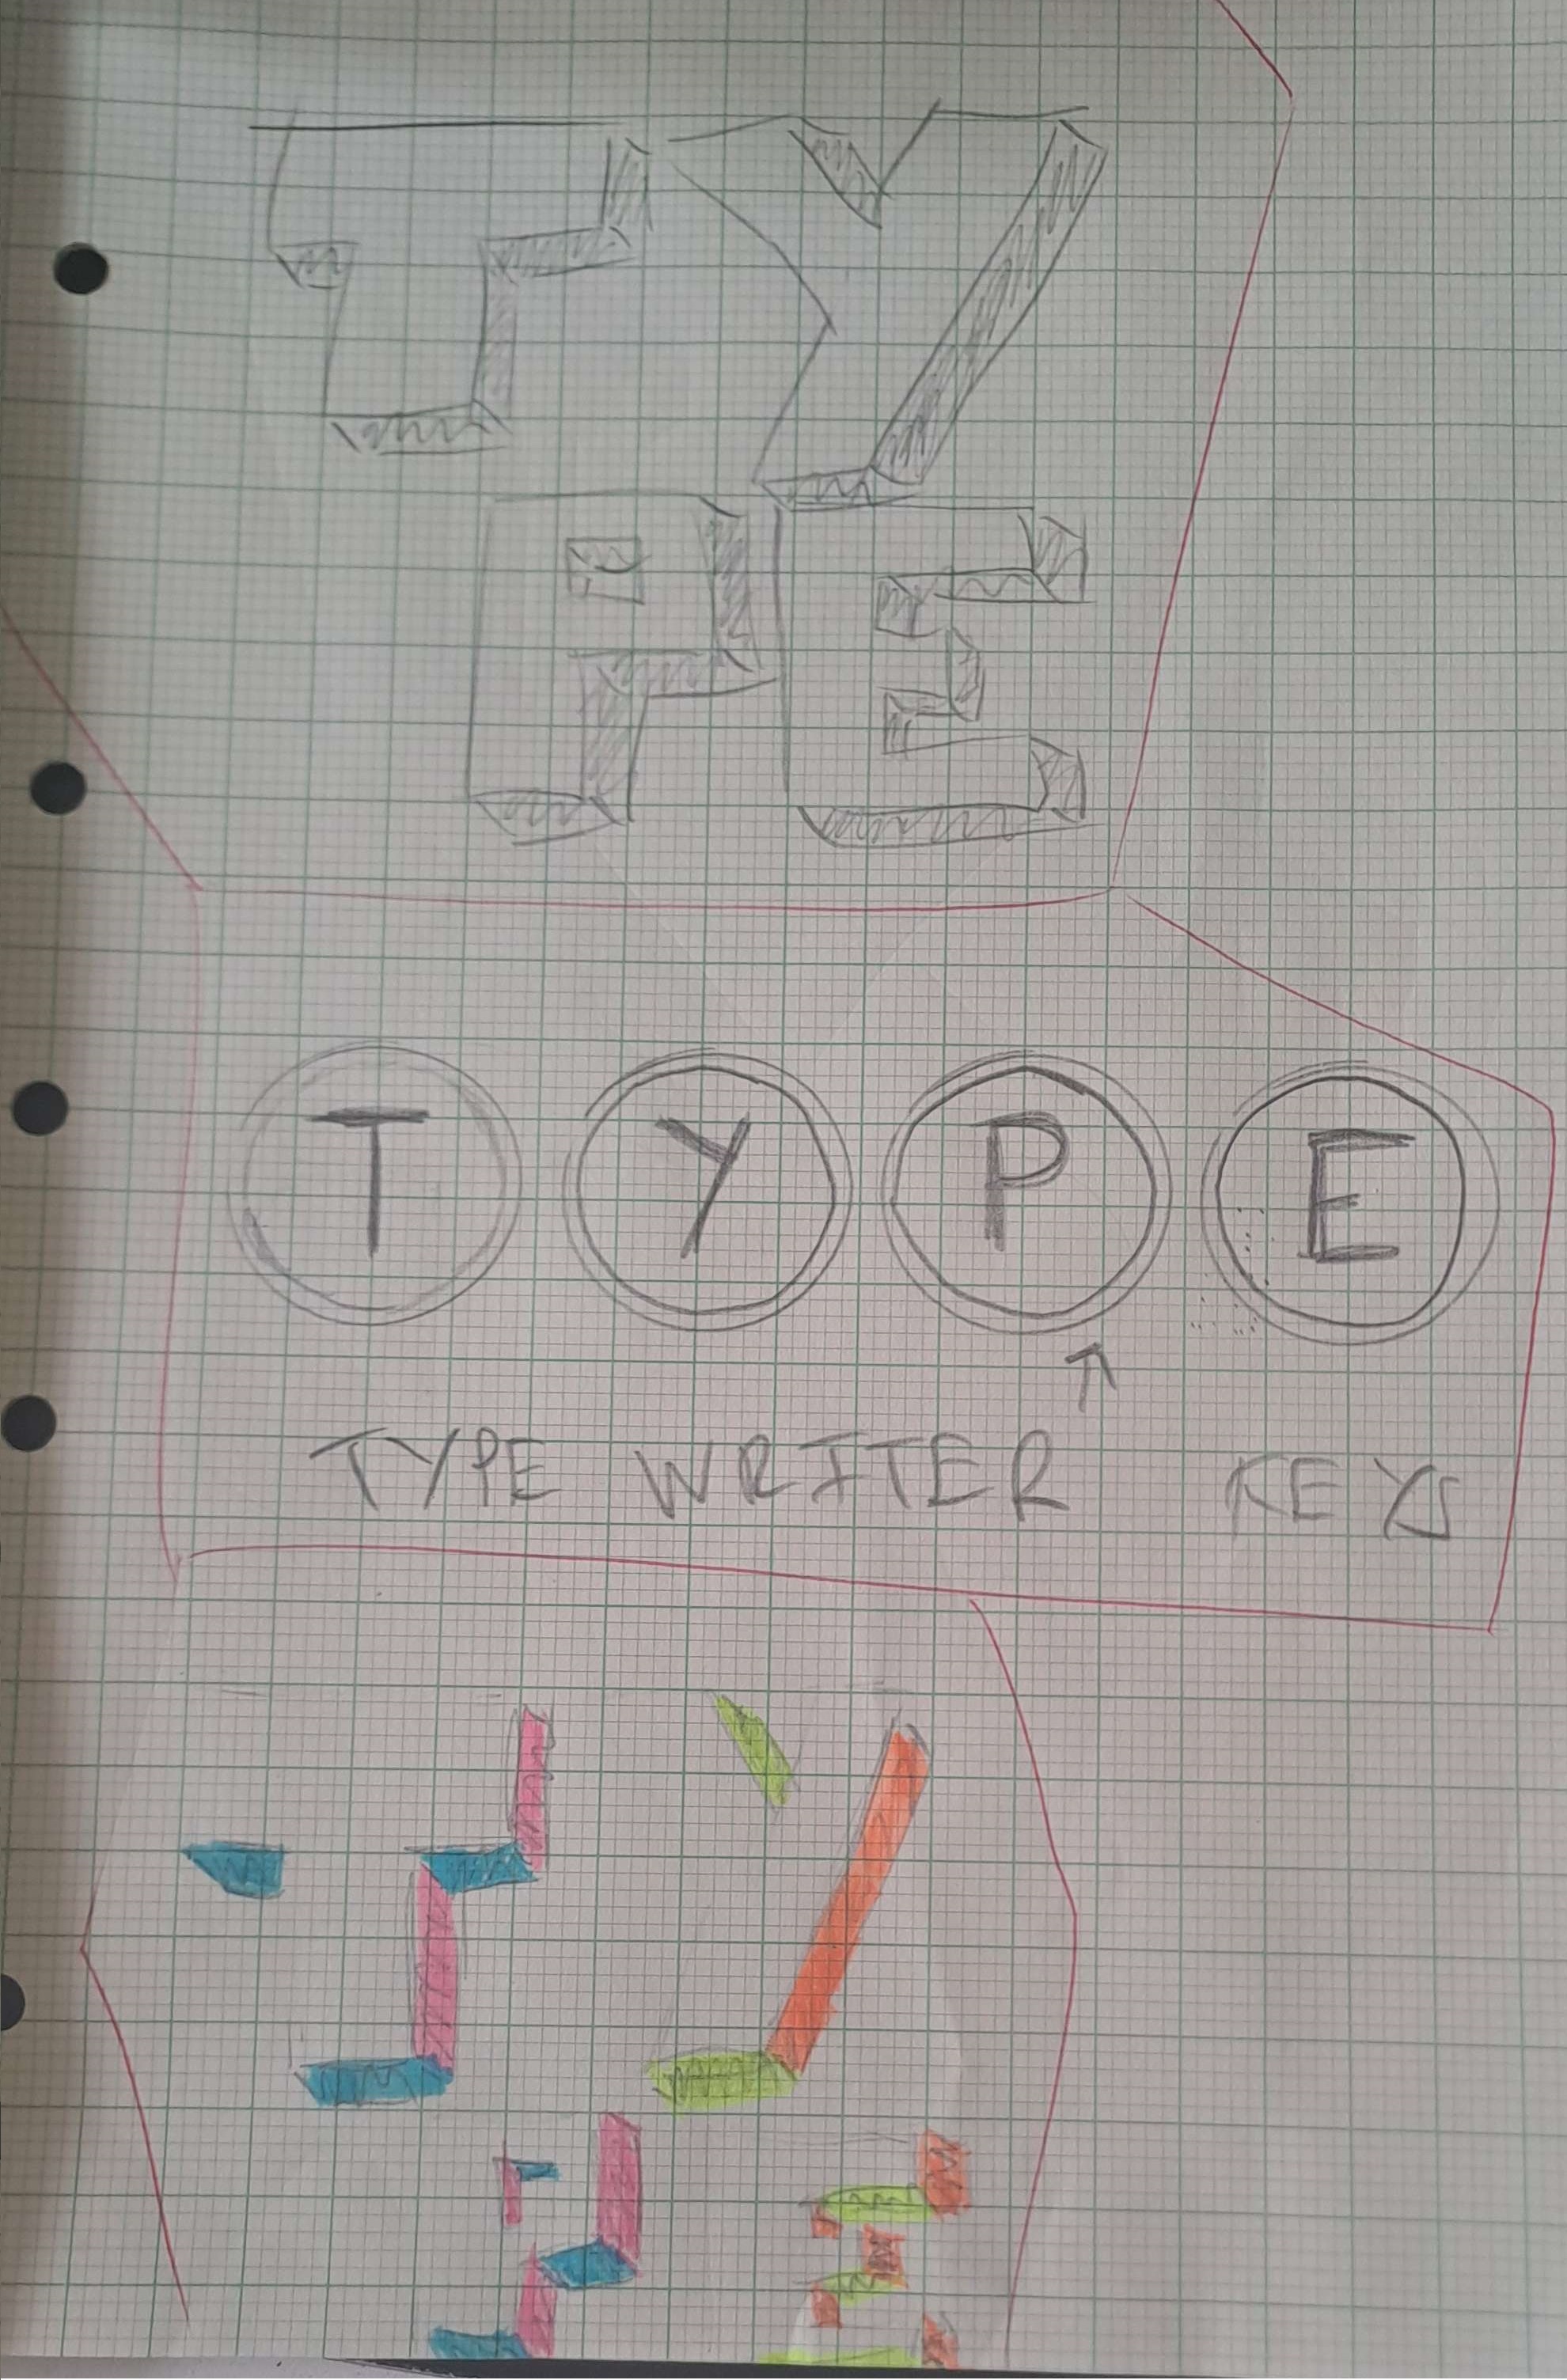 TY
PE
T Y P E
TYPE WRITER KEYS
TY
PE